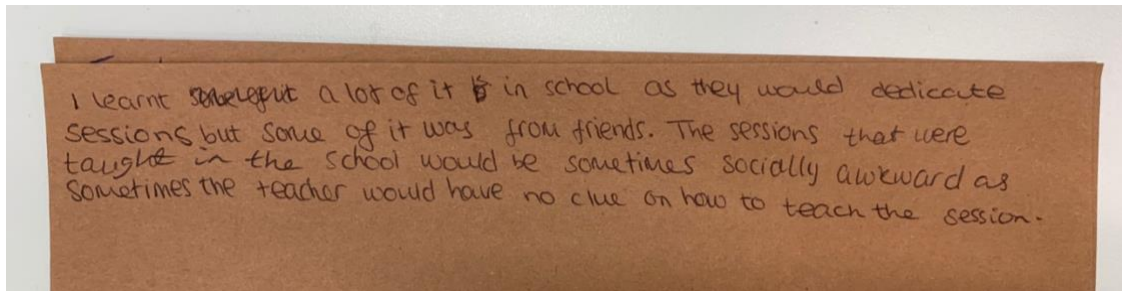 I learnt a lot of it in school as they would dedicate
sessions but some of it was from friends. The sessions that were
taught in the school would be sometimes socially awkward as
sometimes the teacher would have no clue on how to teach the session.